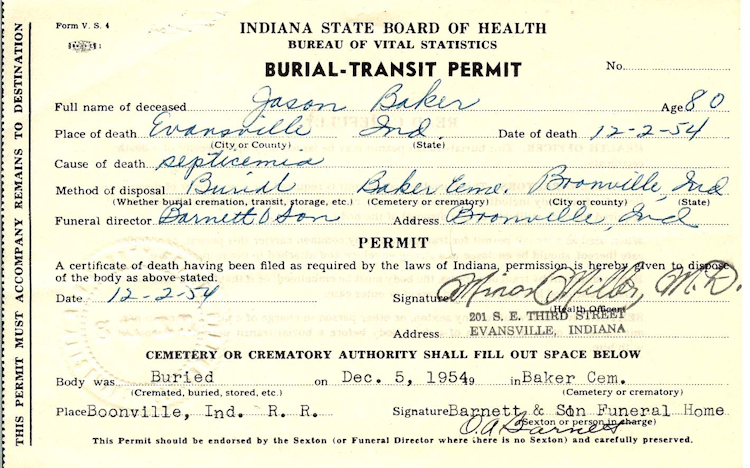 Form V. S. 4
INDIANA STATE BOARD OF HEALTH
BUREAU OF VITAL STATISTICS
BURIAL-TRANSIT PERMIT
No.
Full name of deceased Jason Baker Age 80
Place of death Evansville Ind. Date of death 12-2-54
(City or County) (State)
Cause of death septicemia
Method of disposal Burial Baker Ceme. Bronville, Ind
(Whether burial cremation, transit, storage, etc.) (Cemetery or crematory) (City or county) (State)
Funeral director Barnett & Son Address Bronville, Ind
PERMIT
A certificate of death having been filed as required by the laws of Indiana, permission is hereby given to dispose
of the body as above stated.
Date 12-2-54 Signature Minor Miller, M.D.
(Health Officer)
Address 201 S. E. THIRD STREET
EVANSVILLE, INDIANA
CEMETERY OR CREMATORY AUTHORITY SHALL FILL OUT SPACE BELOW
Body was Buried on Dec. 5, 1954 19 in Baker Cem.
(Cremated, buried, stored, etc.) (Cemetery or crematory)
Place Boonville, Ind. R. R. Signature Barnett & Son Funeral Home
(Sexton or person in charge)
O.A. Barnett
This Permit should be endorsed by the Sexton (or Funeral Director where there is no Sexton) and carefully preserved.
THIS PERMIT MUST ACCOMPANY REMAINS TO DESTINATION